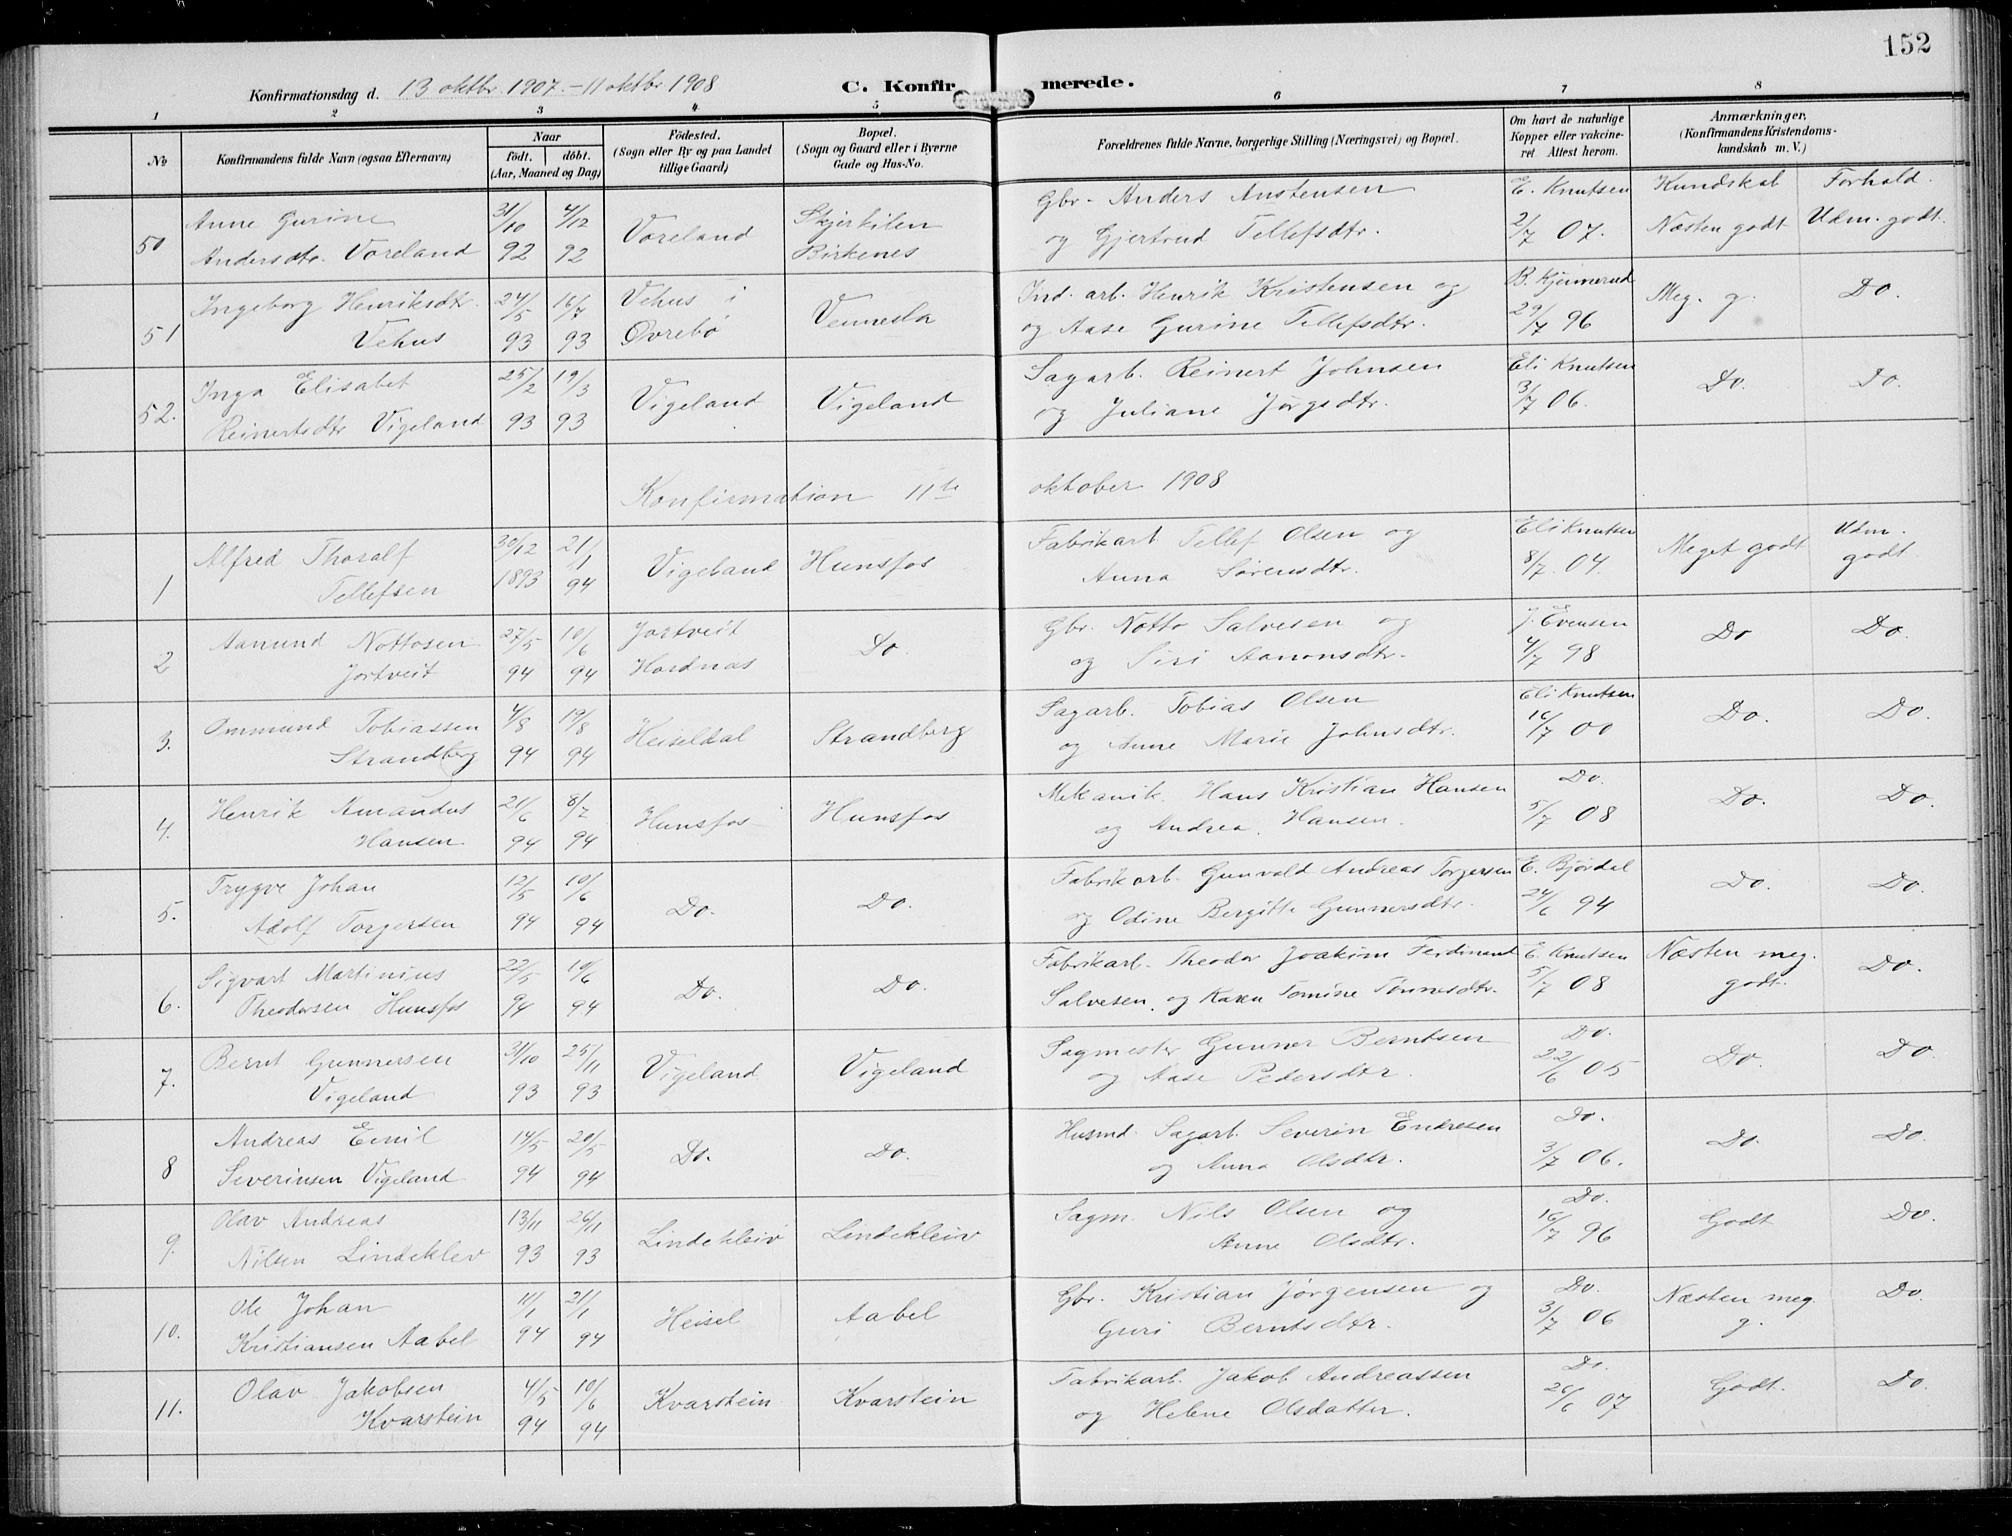 152
Konfirmationsdag d. 13 oktbr. 1907. - 11 oktbr 1908
C. Konfirmerede.
1 2 3 4 5 6 7 8
No
Konfirmandens fulde Navn (ogsaa Efternavn)
Naar
födt. döbt.
(Aar, Maaned og Dag)
Födested.
(Sogn eller By og paa Landet
tillige Gaard)
Bopæl.
(Sogn og Gaard eller i Byerne
Gade og Hus-No.
Forældrenes fulde Navne, borgerlige Stilling (Næringsvei) og Bopæl.
Om havt de naturlige
Kopper eller vakcine-
ret Attest herom.
Anmærkninger,
(Konfirmandens Kristendoms-
kundskab m. V.)
Kundskab Forhold.
50 Anne Gurine 31/10 4/12 Voreland Skjerkilen Gbr. Anders Anstensen E. Knutsen Næsten godt Udm. godt.
Andersdtr. Voreland 92 92 Birkenes og Gjertrud Tellefsdtr. 2/7 07.
51 Ingeborg Henriksdtr. 24/5 16/7 Vehus i Vennesla Ind. arb. Henrik Kristensen og B. Kjennerud Meg. g. Do.
Vehus 93 93 Øvrebø og Aase Gurine Tellefsdtr. 29/7 96
52. Inga Elisabet 25/2 19/3 Vigeland Vigeland Sagarb. Reinert Johnsen Eli Knutsen Do. Do.
Reinertsdtr Vigeland 93 93 og Juliane Jørgsdtr. 3/7 06.
Konfirmation 11te oktober 1908
1 Alfred Thoralf 30/12 21/1 Vigeland Hunsfos Fabrikarb. Tellef Olsen og Eli Knutsen Meget godt Udm.
Tellefsen 1893 94 Anna Sørensdtr. 8/7. 04. godt
2 Aanund Nottosen 27/5 10/6 Jortveit Do. Gbr. Notto Salvesen og J. Evensen Do Do.
Jortveit 94 94 Hordnæs og Siri Aanonsdtr. 4/7 98
3. Ommund Tobiassen 4/8 19/8 Heiseldal Strandberg Sagarb. Tobias Olsen Eli Knutsen Do. Do.
Strandberg 94 94 og Anne Marie Johnsdtr. 16/7 00
4. Henrik Amandus 21/6 8/7 Hunsfos Hunsfos Mekanik. Hans Kristian Hansen Do. Do. Do.
Hansen 94 94 og Andrea Hansen. 5/7 08
5. Trygve Johan 12/5 10/6 Do. Do. Fabrikarb. Gunvald Andreas Torgersen E. Bjørdal Do. Do.
Adolf Torgersen 94 94 og Odine Bergitte Gunnersdtr. 24/6 94
6. Sigvart Martinius 22/5 10/6 Do. Do. Fabrikarb. Theodor Joakim Ferdinand E. Knutsen Næsten meg. Do.
Theodorsen Hunsfos 94 94 Salvesen, og Karen Tomine Tønnesdtr. 5/7 08 godt.
7. Bernt Gunnersen 31/10 25/11 Vigeland Vigeland Sagmester Gunner Berntsen Do. Do. Do.
Vigeland 93 93 og Aase Pedersdtr. 22/6 05
8 Andreas Emil 14/5 20/5 Do. Do. Husmd. Sagarb. Severin Endresen Do. Do. Do.
Severinsen Vigeland 94 94 og Anna Olsdtr. 3/7 06.
9. Olav Andreas 13/11 26/11 Lindekleiv Lindekleiv Sagm. Nils Olsen og Do. Godt Do.
Nilsen Lindeklev 93 93 Anne Olsdtr. 16/7 96
10. Ole Johan 11/1 21/1 Heisel Aabel Gbr. Kristian Jørgensen og Do. Næsten meg. Do.
Kristiansen Aabel 94 94 Guri Berntsdtr. 3/7 06 g.
11. Olav Jakobsen 4/5 10/6 Kvarstein Kvarstein Fabrikarb. Jakob Andreassen Do. Godt. Do.
Kvarstein 94 94 og Helene Olsdatter. 26/6 07